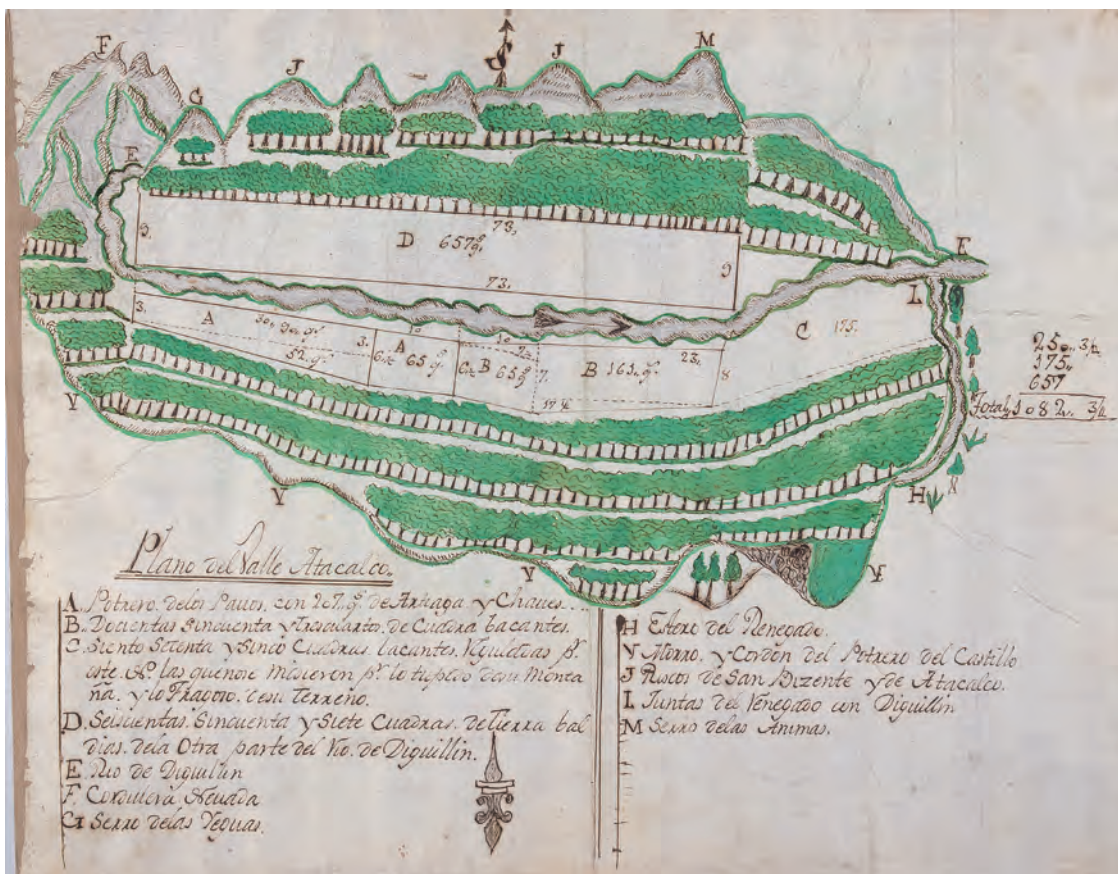 F
G
J
S
J
M
E
73,
9,
D 657 q.s
9
73.
E
L
3.
A
3.
A
65 q.
B 65 q.
7,
B 161. q.s
23,
8
C 175.
52. q.s
17 ¼
250. 3/4
175.
657
Total, 1082. 3/4
Y
Y
Y
Y
H
Plano del Valle Atacalco.
A. Potrero. delos Pavos. con 267. q.s de Arriaga y Chaves.
B. Docientas Sincuenta y tres cuartos. de Cuadra bacantes.
C. Siento Setenta y Sinco Cuadras. bacantes. p.r
este. las que no se misieron p.r lo tupido de su Monta
ña. y lo Fragoso. de su Terreno.
D. Seiscientas. Sincuenta y Siete Cuadras. de Tierra bal
dias. dela Otra parte del Rio. de Diguillin.
E. Rio de Diguillin
F. Cordillera Nevada
G. Serro delas Yeguas.
H Estero del Renegado.
Y Morro, y Cordon del Potrero del Castillo
J Riscos de San Bizente y de Atacalco.
L Juntas del Renegado con Diguillin
M Serro delas Animas.